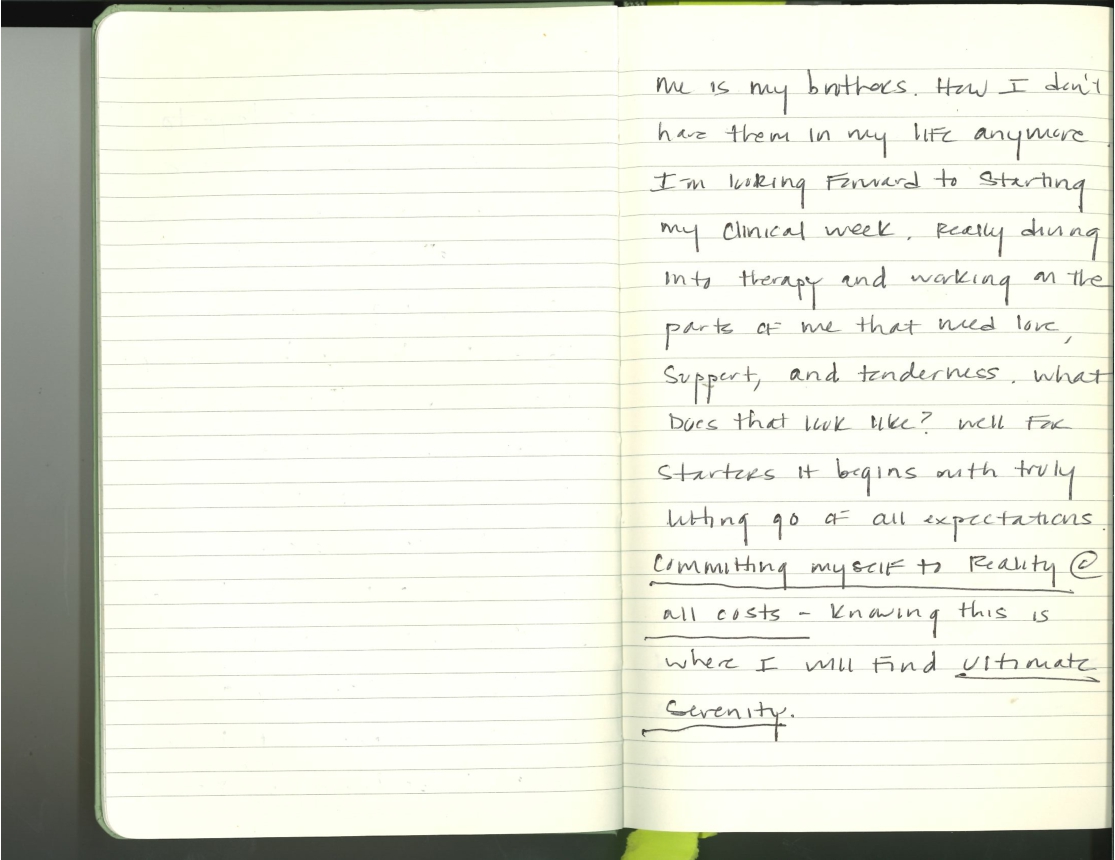 me is my brothers. How I don't
have them in my life anymore.
I'm looking Forward to Starting
my Clinical week. Really diving
into therapy and working on the
parts of me that need love,
Support, and tenderness. What
Does that look like? well For
starters it begins with truly
letting go of all expectations.
Committing myself to Reality @
all costs - Knowing this is
where I will Find Ultimate
Serenity.